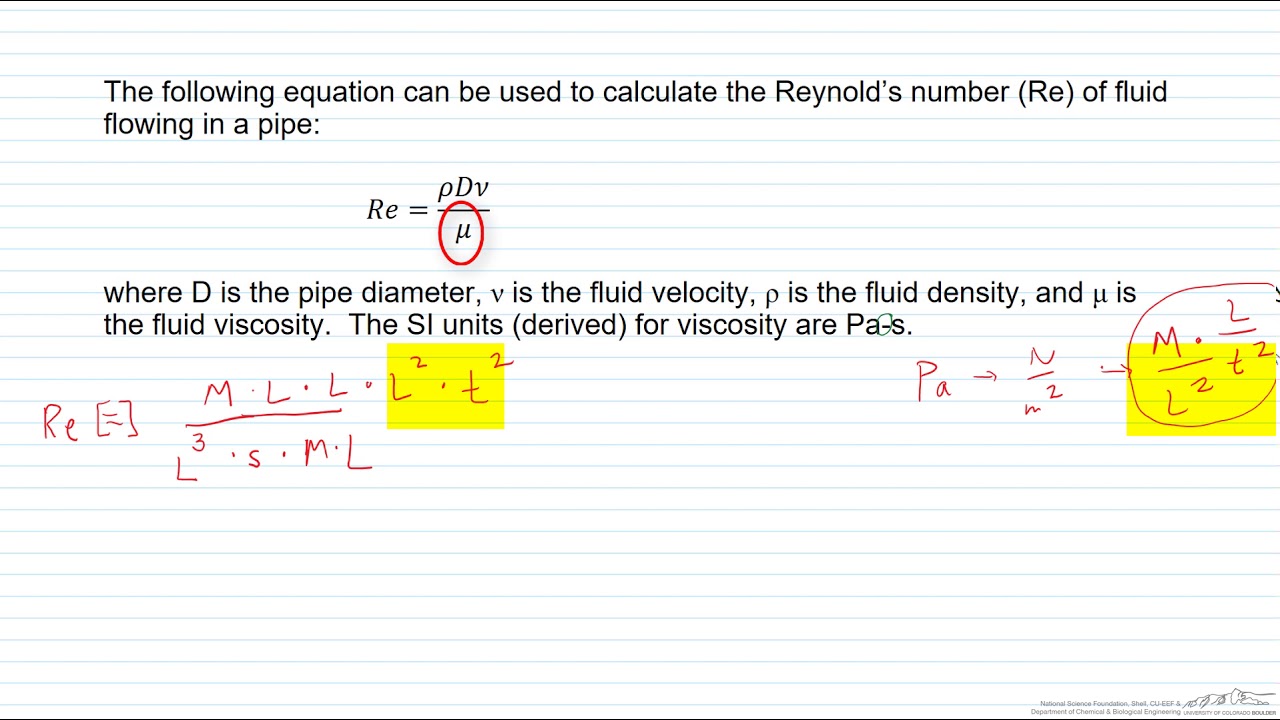 The following equation can be used to calculate the Reynold's number (Re) of fluid
flowing in a pipe:
Re = ρDν / μ
where D is the pipe diameter, ν is the fluid velocity, ρ is the fluid density, and μ is
the fluid viscosity. The SI units (derived) for viscosity are Pa-s.
Re [=] M · L · L · L² · t² / L³ · s · M · L
Pa → N / m² → M · L / t² / L²
National Science Foundation, Shell, CU-EEF &
Department of Chemical & Biological Engineering UNIVERSITY OF COLORADO BOULDER